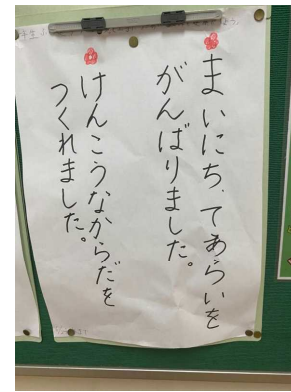 まいにち、てあらいを
がんばりました。
けんこうなからだを
つくれました。